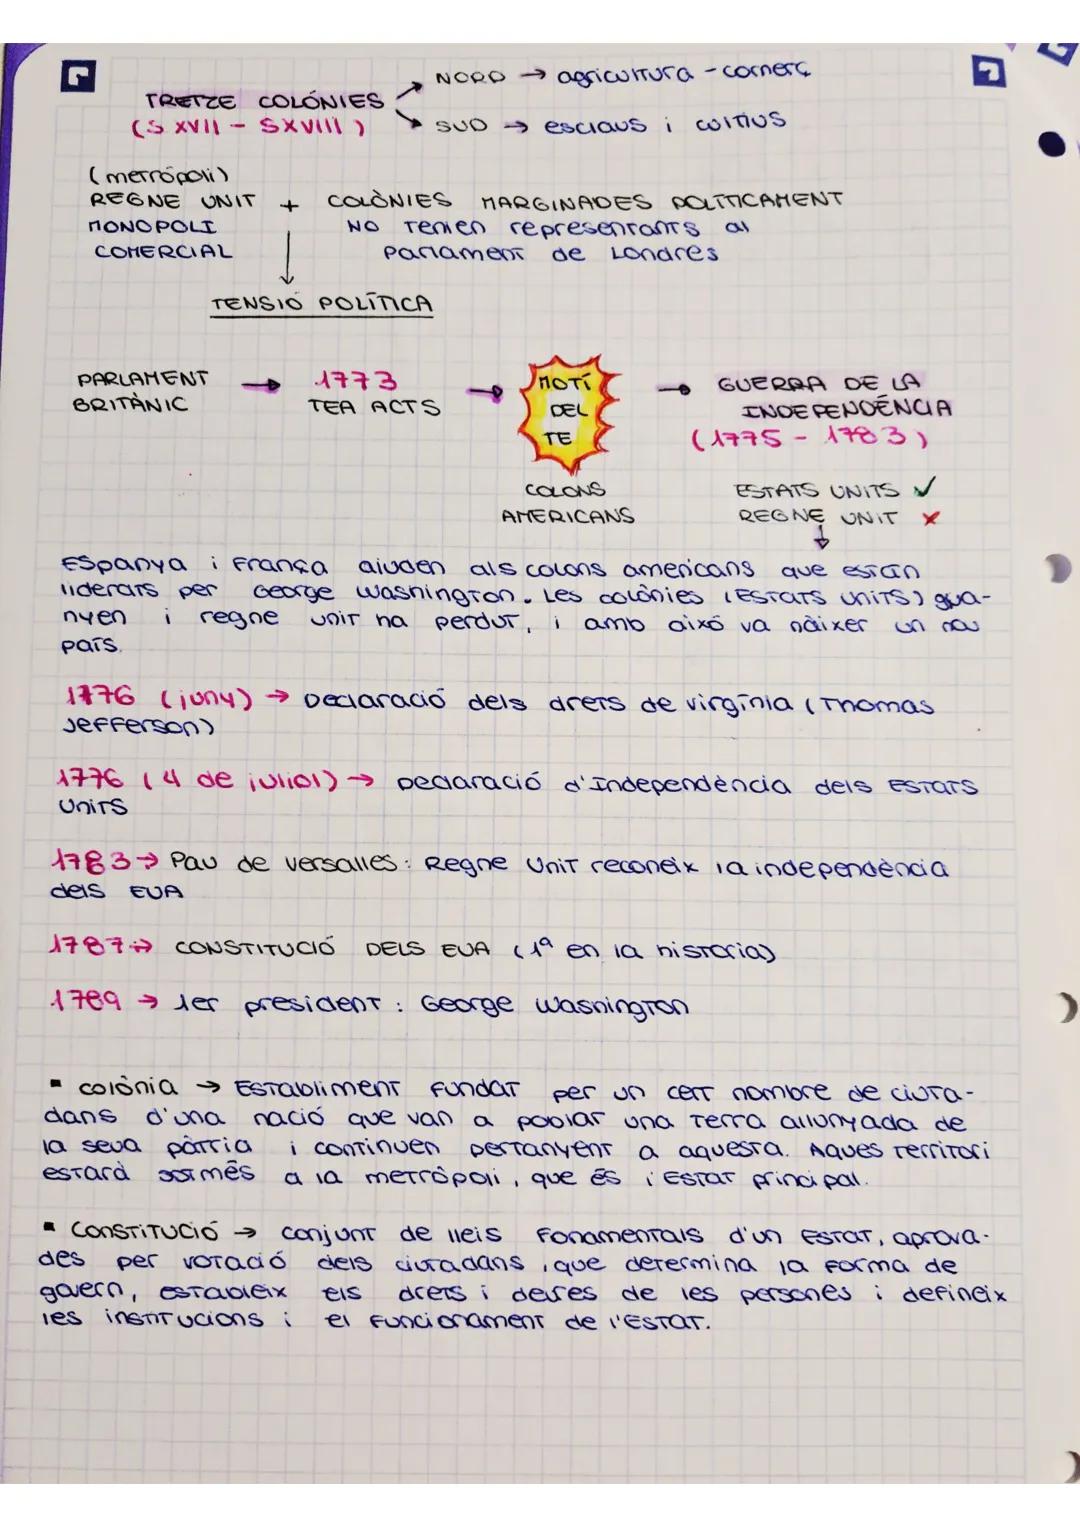 NORD → agricultura - comerç
TRETZE COLÓNIES
(S XVII - SXVIII)
SUD → esclaus i cultius
(metròpoli)
REGNE UNIT + COLÒNIES MARGINADES POLÍTICAMENT
MONOPOLI NO Tenien representants al
COMERCIAL Parlament de Londres
TENSIÓ POLÍTICA
PARLAMENT → 1773 → MOTÍ → GUERRA DE LA
BRITÀNIC TEA ACTS DEL INDEPENDÈNCIA
TE (1775 - 1783)
COLONS ESTATS UNITS ✓
AMERICANS REGNE UNIT ✗
Espanya i França aiuden als colons americans que están
liderats per George Washington. Les colònies (Estats units) gua-
nyen i regne unit ha perdut, i amb aixó va nàixer un nou
país.
1776 (juny) → Declaració dels drets de virgínia (Thomas
Jefferson)
1776 (4 de juliol) → Declaració d'Independència dels Estats
units
1783 → Pau de versalles: Regne Unit reconeix la independència
dels EUA
1787 → CONSTITUCIÓ DELS EUA (1ª en la historia)
1789 → 1er president: George Washington
▪ colònia → Establiment fundat per un cert nombre de ciuta-
dans d'una nació que van a poblar una terra allunyada de
la seua pàtria i continuen pertanyent a aquesta. Aques territori
estarà sotmés a la metròpoli, que és l'Estat principal.
▪ Constitució → conjunt de lleis fonamentals d'un Estat, aprova-
des per votació dels ciutadans, que determina la forma de
govern, estableix els drets i deures de les persones i defineix
les institucions i el funcionament de l'Estat.